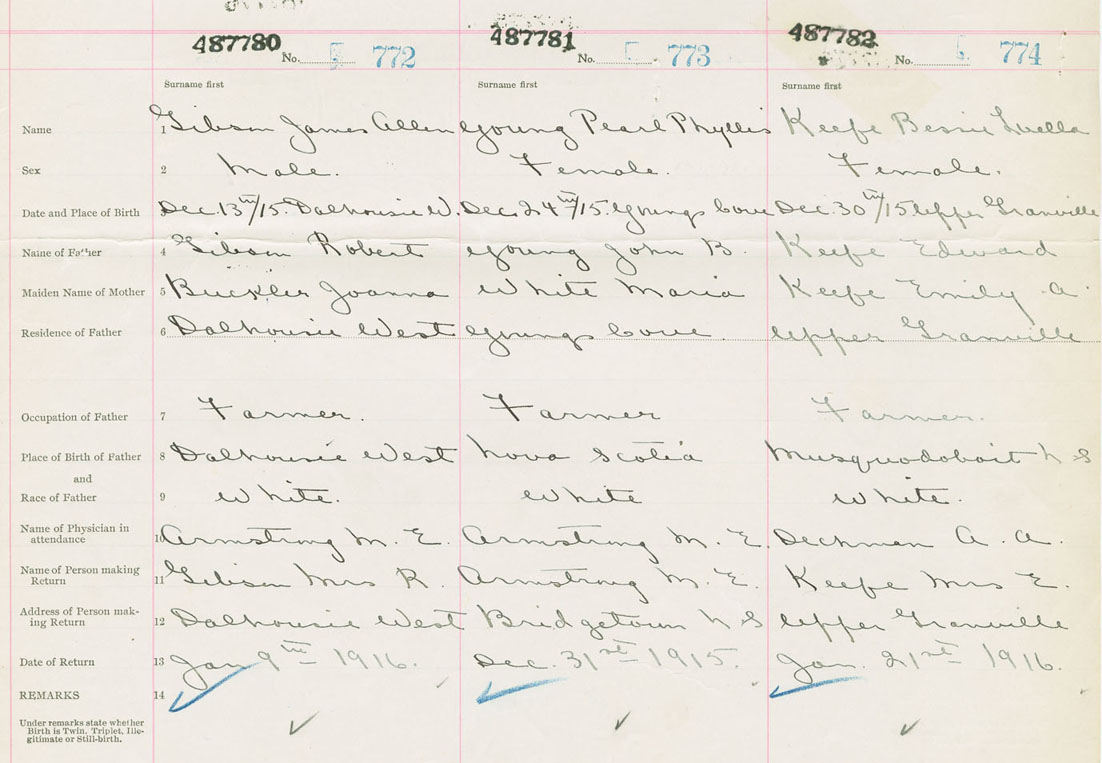 487780 487781 487782
No. 772 No. 773 No. 774
Surname first Surname first Surname first
Name 1 Gibson James Allen Young Pearl Phyllis Keefe Bessie Luella
Sex 2 Male. Female. Female.
Date and Place of Birth Dec. 13th/15. Dalhousie W. Dec. 24th/15. Youngs Cove Dec. 30th/15 Upper Granville
Name of Father 4 Gibson Robert Young John B. Keefe Edward
Maiden Name of Mother 5 Buckler Joanna White Maria Keefe Emily A.
Residence of Father 6 Dalhousie West Youngs Cove Upper Granville
Occupation of Father 7 Farmer. Farmer Farmer.
Place of Birth of Father 8 Dalhousie West Nova Scotia Musquodoboit N S
and
Race of Father 9 White. White White.
Name of Physician in
attendance 10 Armstrong M. E. Armstrong M. E. Deckman A. A.
Name of Person making
Return 11 Gibson Mrs R. Armstrong M. E. Keefe Mrs E.
Address of Person mak-
ing Return 12 Dalhousie West Bridgetown N S Upper Granville
Date of Return 13 Jan 9th 1916. Dec. 31st 1915. Jan. 21st 1916.
REMARKS 14
Under remarks state whether
Birth is Twin, Triplet, Ille-
gitimate or Still-birth.